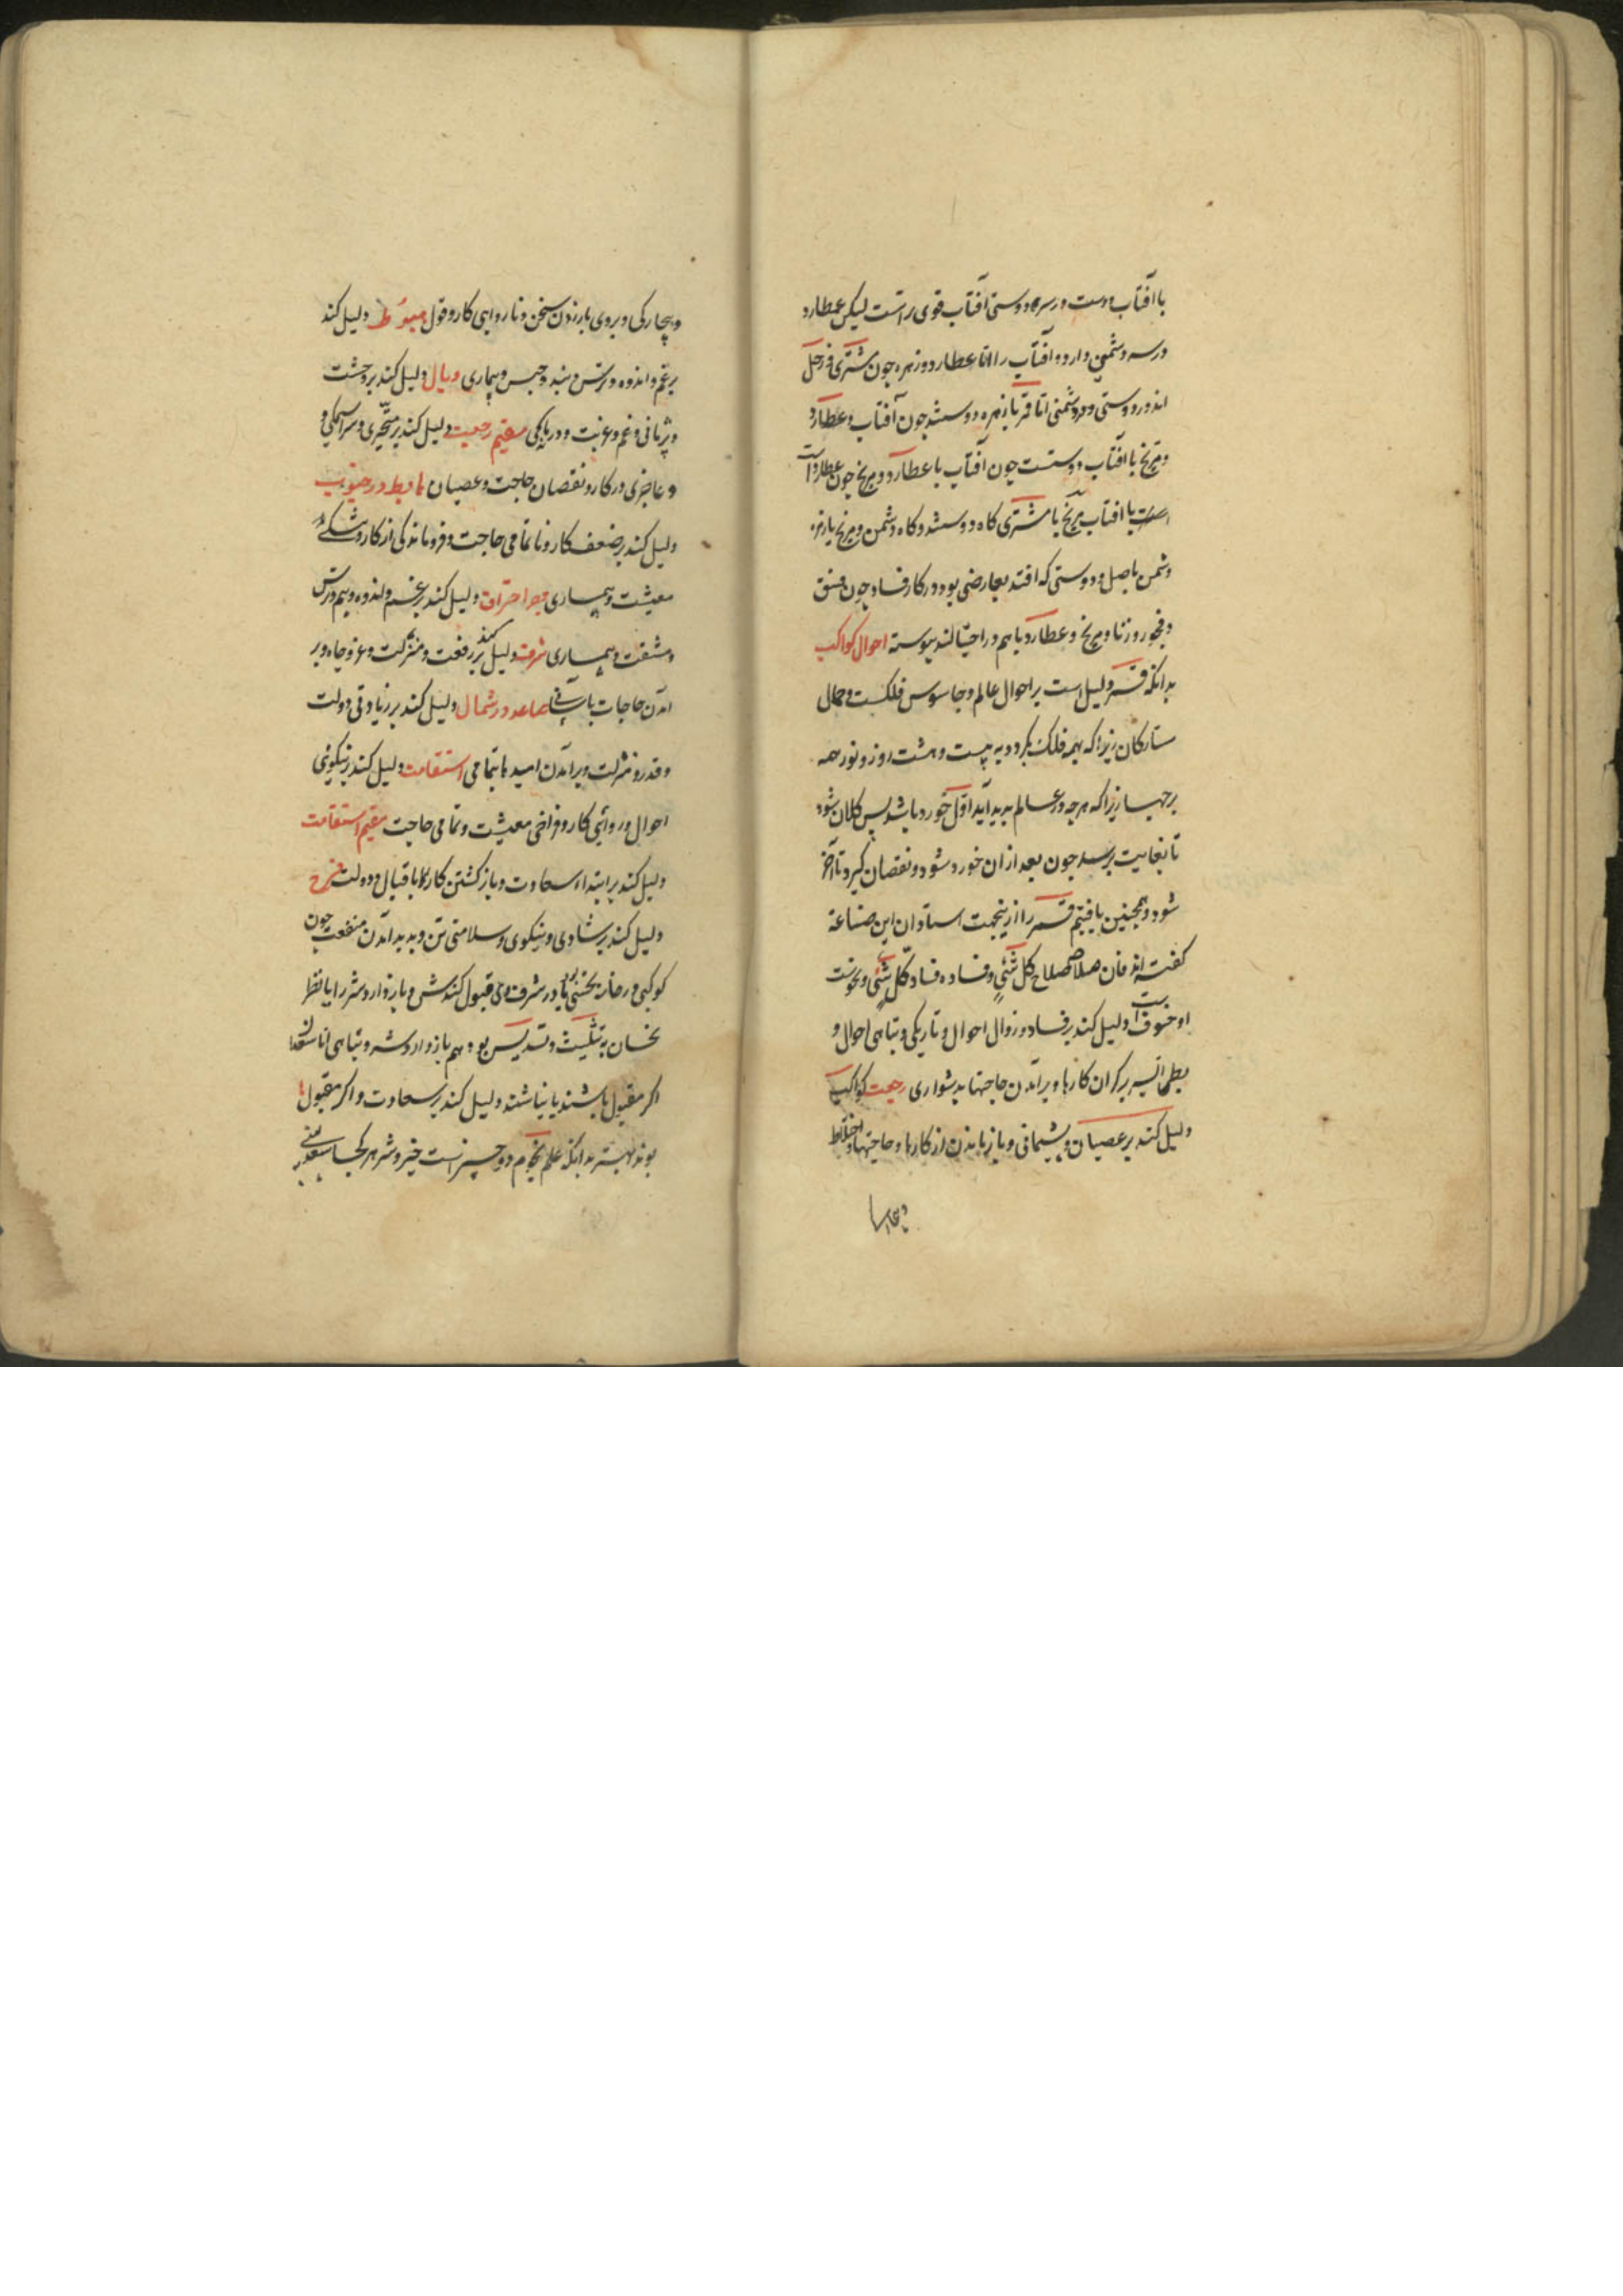 با آفتاب دوست در سر دوستی آفتاب قوی تر است لیکن عطارد
در سر دشمنی دارد و آفتاب را اما عطارد و زهره چون مشتری و زحل
اندر دوستی و دشمنی اما قمر با زهره دوستند چون آفتاب و عطارد
و مریخ با آفتاب دوستست چون آفتاب با عطارد و مریخ چون عطارد است
با آفتاب مریخ با مشتری کاه دوستند و کاه دشمن و مریخ با زهره
دشمن باصل و دوستی که افتد بعارضی بود در کار فساد چون فسق
و فجور و زنا و مریخ و عطارد باهم در پیوسته احوال کواکب
بدانکه قمر دلیل است بر احوال عالم و جاسوس فلکست و حمال
ستارکان زیرا که بهمه فلک بکردد به بیست و هشت روز و نور همه
زیرا که هر چه در عالم پدید آید اول خورد باشد پس کلان شود
تا بغایت برسد چون بعد از ان خورد شود و نقصان کیرد تا آخر
شود و همچنین یافتیم قمر را ازینجهت استادان این صناعة
کفته اند فان صلاحه صلاح کل شئ و فساده فساد کل شئ و نحوست
او خسوف است دلیل کند بر فساد و زوال احوال و تاریکی و تباهی احوال و
بطی السیر بر کران کارها و برآمدن حاجتها بدشواری رجعت کواکب
دلیل کند بر عصیان و پشیمانی و باز ماندن از کارها و حاجتها و اختلاط
و بیچارکی و بروی باز زدن سخن و ناروایی کار و قول هبوط دلیل کند
بر غم و اندوه و ترس و بند و حبس و بیماری وبال دلیل کند بر وحشت
و پژمانی و غم و غربت و مقیم رجعت دلیل کند بر متحیری و سراسیمکی و
و عاجزی در کار و نقصان حاجت و عصیان هابط در جنوب
دلیل کند بر ضعف کار و ناتمامی حاجت و فروماندکی از کار و
معیشت و بیماری احتراق دلیل کند بر غم و اندوه و بیم و ترس
و مشقت و بیماری شرف دلیل کند بر رفعت و منزلت و عز و جاه و بر
آمدن حاجات باسانی صاعد در شمال دلیل کند بر زیادتی دولت
و قدر و منزلت و برآمدن امیدها بتمامی استقامت دلیل کند بر نیکوئی
احوال و روائی کار و فراخی معیشت و تمامی حاجت مقیم استقامت
دلیل کند بر ابتداء سعادت و باز کشتن کارها باقبال و دولت فرح
دلیل کند بر شادی و نیکوی و سلامتی تن و پدید آمدن منفعت چون
کوکبی در خانه نحسی یا در شرف وی قبول کندش و باز دارد شر را یا نظر
نحسان به تثلیث و تسدیس بود هم باز دارد شر و تباهی اما سعدان
اکر مقبول باشند یا نباشند دلیل کند بر سعادت و اکر مقبول
بوند بهتر بدانکه علم نجوم دو چیز است خیر و شر هر کجا سعدی